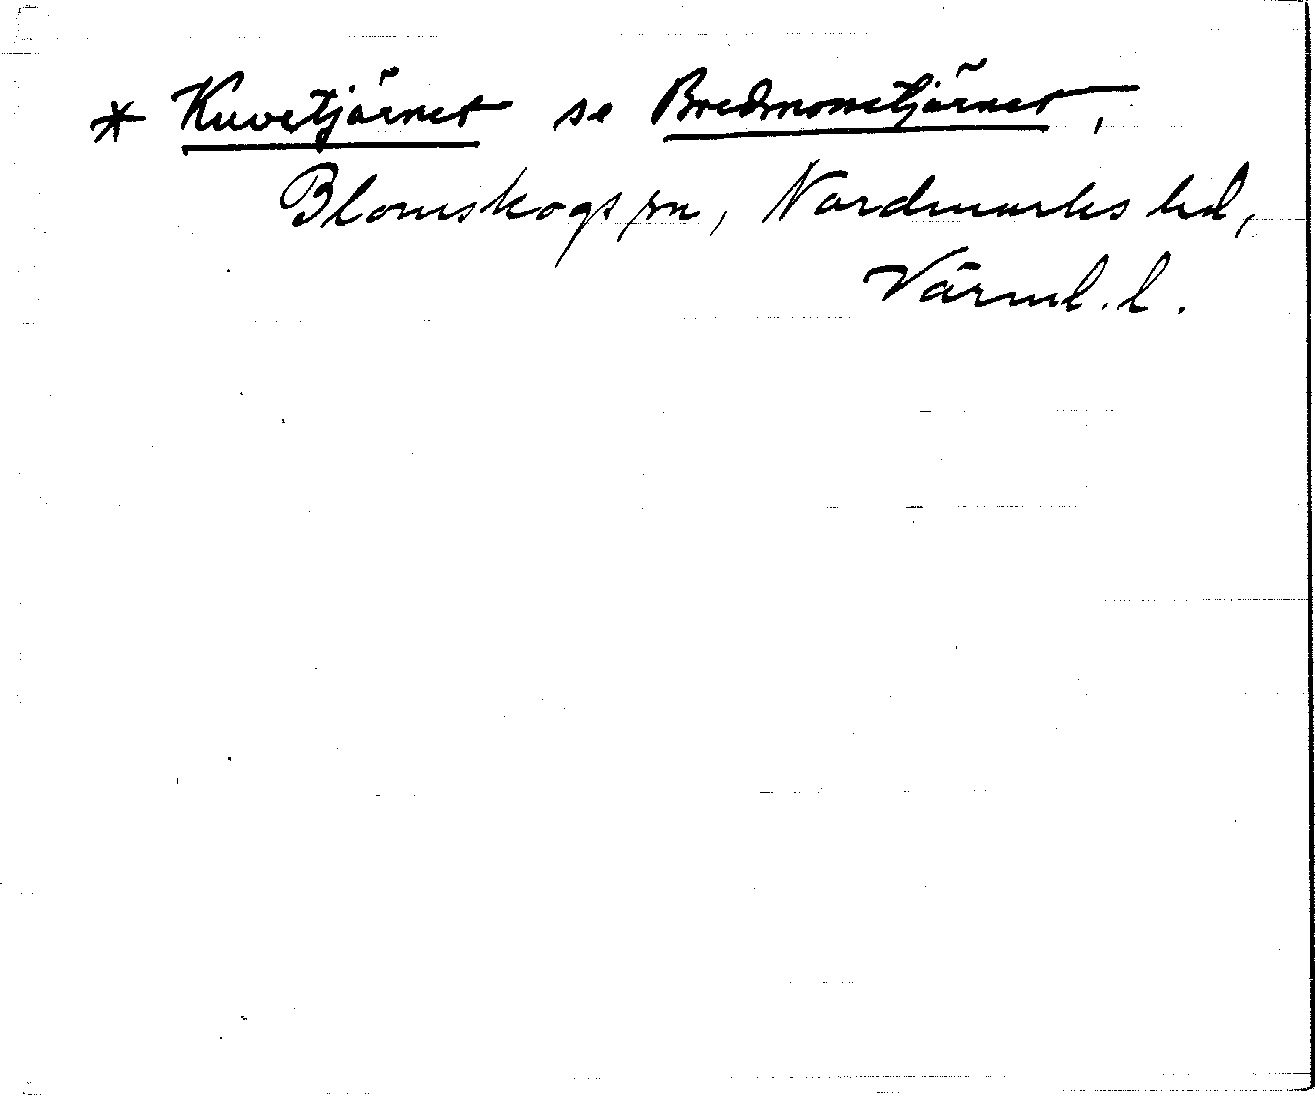 * Kuvetjärnet se Bredmossetjärnet,
Blomskogs sn, Nordmarks hd,
Värml. l.